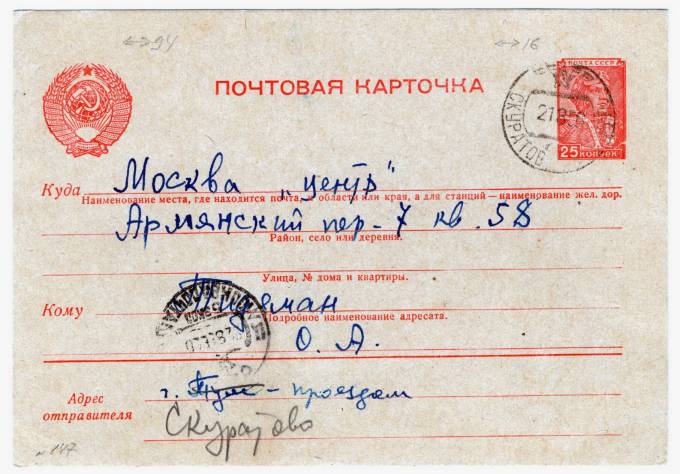 ↔94 ↔16
ПОЧТА СССР
ПОЧТОВАЯ КАРТОЧКА
СКУРАТОВ
25 КОПЕЕК
Куда Москва „центр"
Наименование места, где находится почта, и области или края, а для станций—наименование жел. дор.
Армянский пер-7 кв. 58
Район, село или деревня.
Улица, № дома и квартиры.
Кому
Подробное наименование адресата.
О. А.
Адрес отправителя г. - проездом
Скуратово
№147